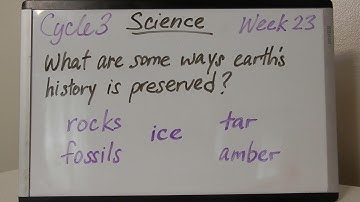 Cycle 3 Science Week 23
What are some ways earth's
history is preserved?
rocks ice tar
fossils amber